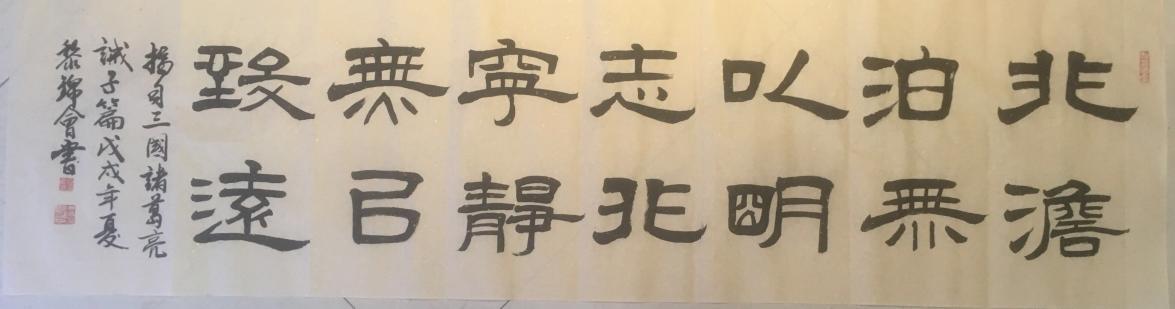 非澹
泊無
以明
志非
寧靜
無㠯
致遠
摘自三國諸葛亮
誡子篇戊戌年夏
黎錦會書